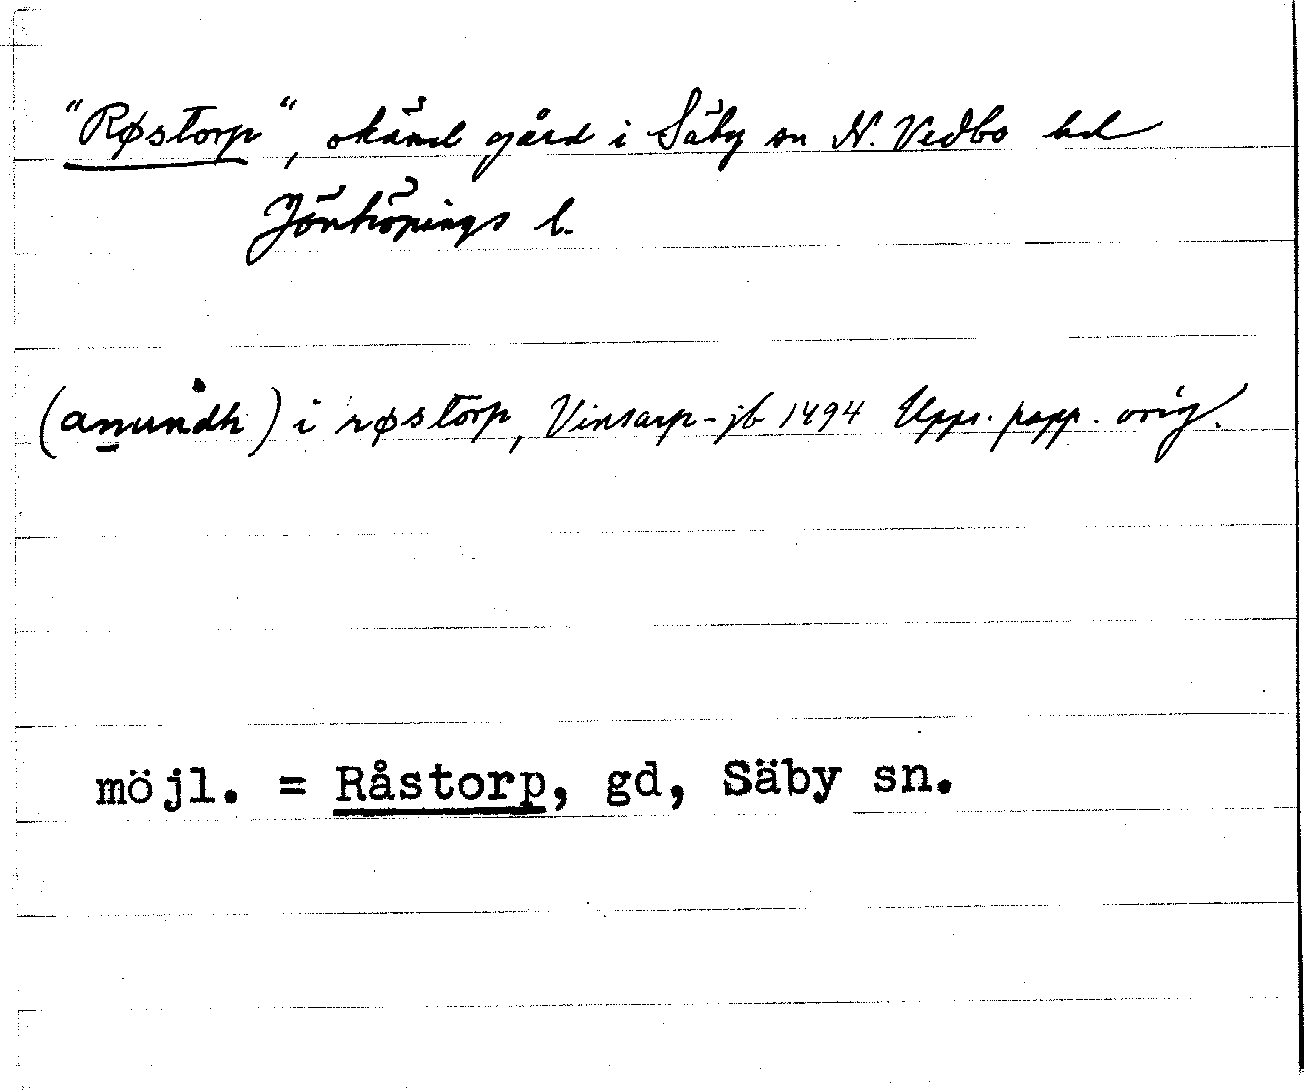 "Røstorp", okänd gård i Säby sn N. Vedbo hd
Jönköpings l.
(anundh) i røstorp, Vinsarp-jb 1494 Upps. papp. orig.
möjl. = Råstorp, gd, Säby sn.